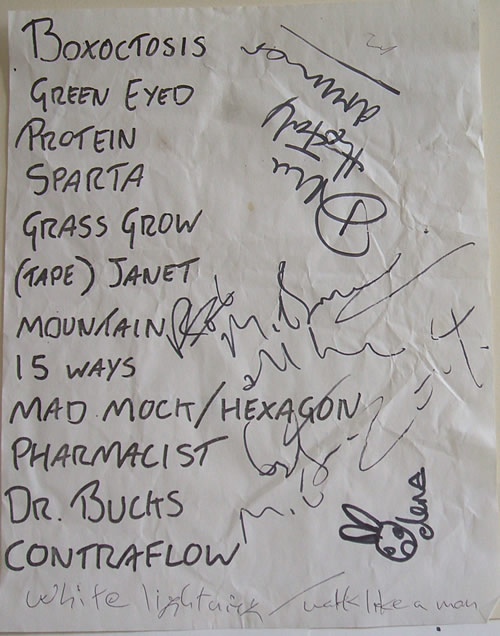 BOXOCTOSIS
GREEN EYED
PROTEIN
SPARTA
GRASS GROW
(TAPE) JANET
MOUNTAIN
15 WAYS
MAD MOCK/HEXAGON
PHARMACIST
DR. BUCKS
CONTRAFLOW
elena
white lightning / walk like a man